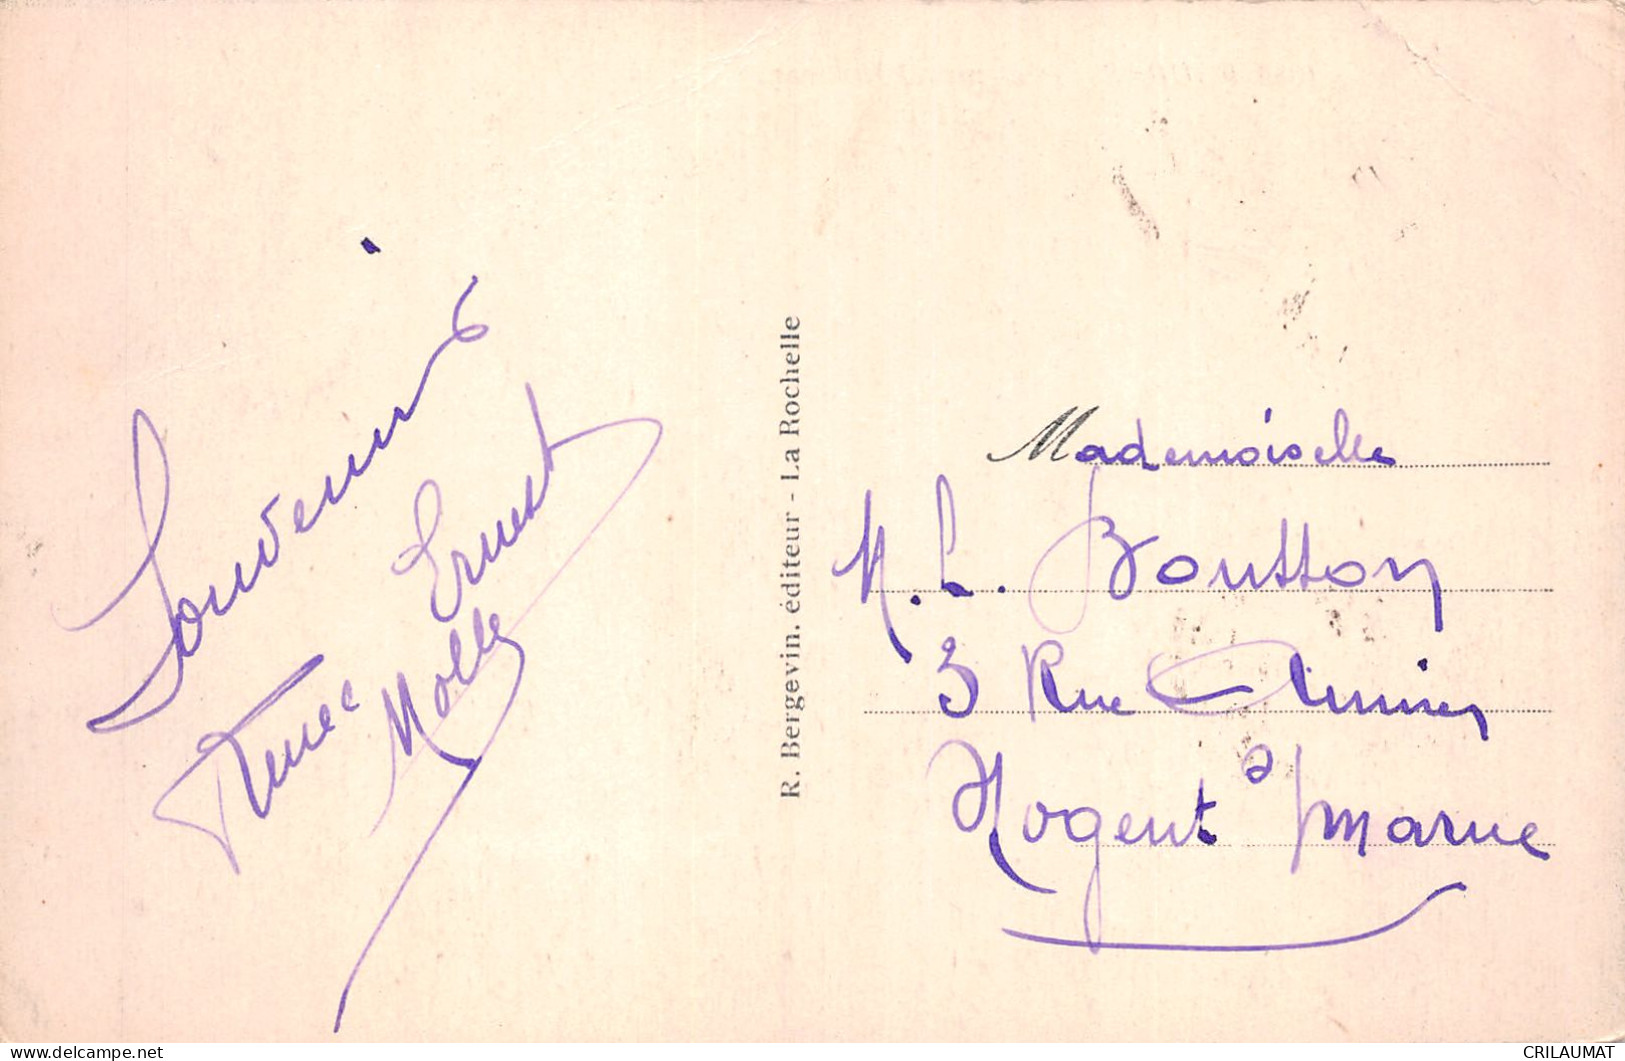 Souvenirs
Ernest
Renée Molle
R. Bergevin, éditeur - La Rochelle
Mademoiselle
M. L. Boutton
3 Rue
Nogent s/ marne
www.delcampe.net
CRILAUMAT